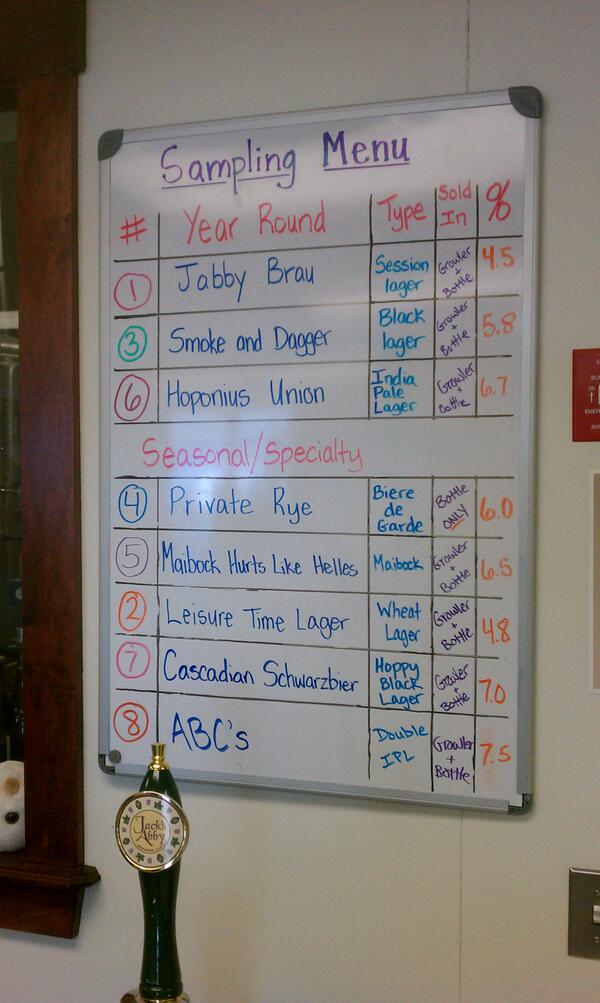 Sampling Menu
# Year Round Type Sold In %
1 Jabby Brau Session lager Growler + Bottle 4.5
3 Smoke and Dagger Black lager Growler + Bottle 5.8
6 Hoponius Union India Pale Lager Growler + Bottle 6.7
Seasonal/Specialty
4 Private Rye Biere de Garde Bottle ONLY 6.0
5 Maibock Hurts Like Helles Maibock Growler + Bottle 6.5
2 Leisure Time Lager Wheat Lager Growler + Bottle 4.8
7 Cascadian Schwarzbier Hoppy Black Lager Growler + Bottle 7.0
8 ABC's Double IPL Growler + Bottle 7.5
Jack's
Abby